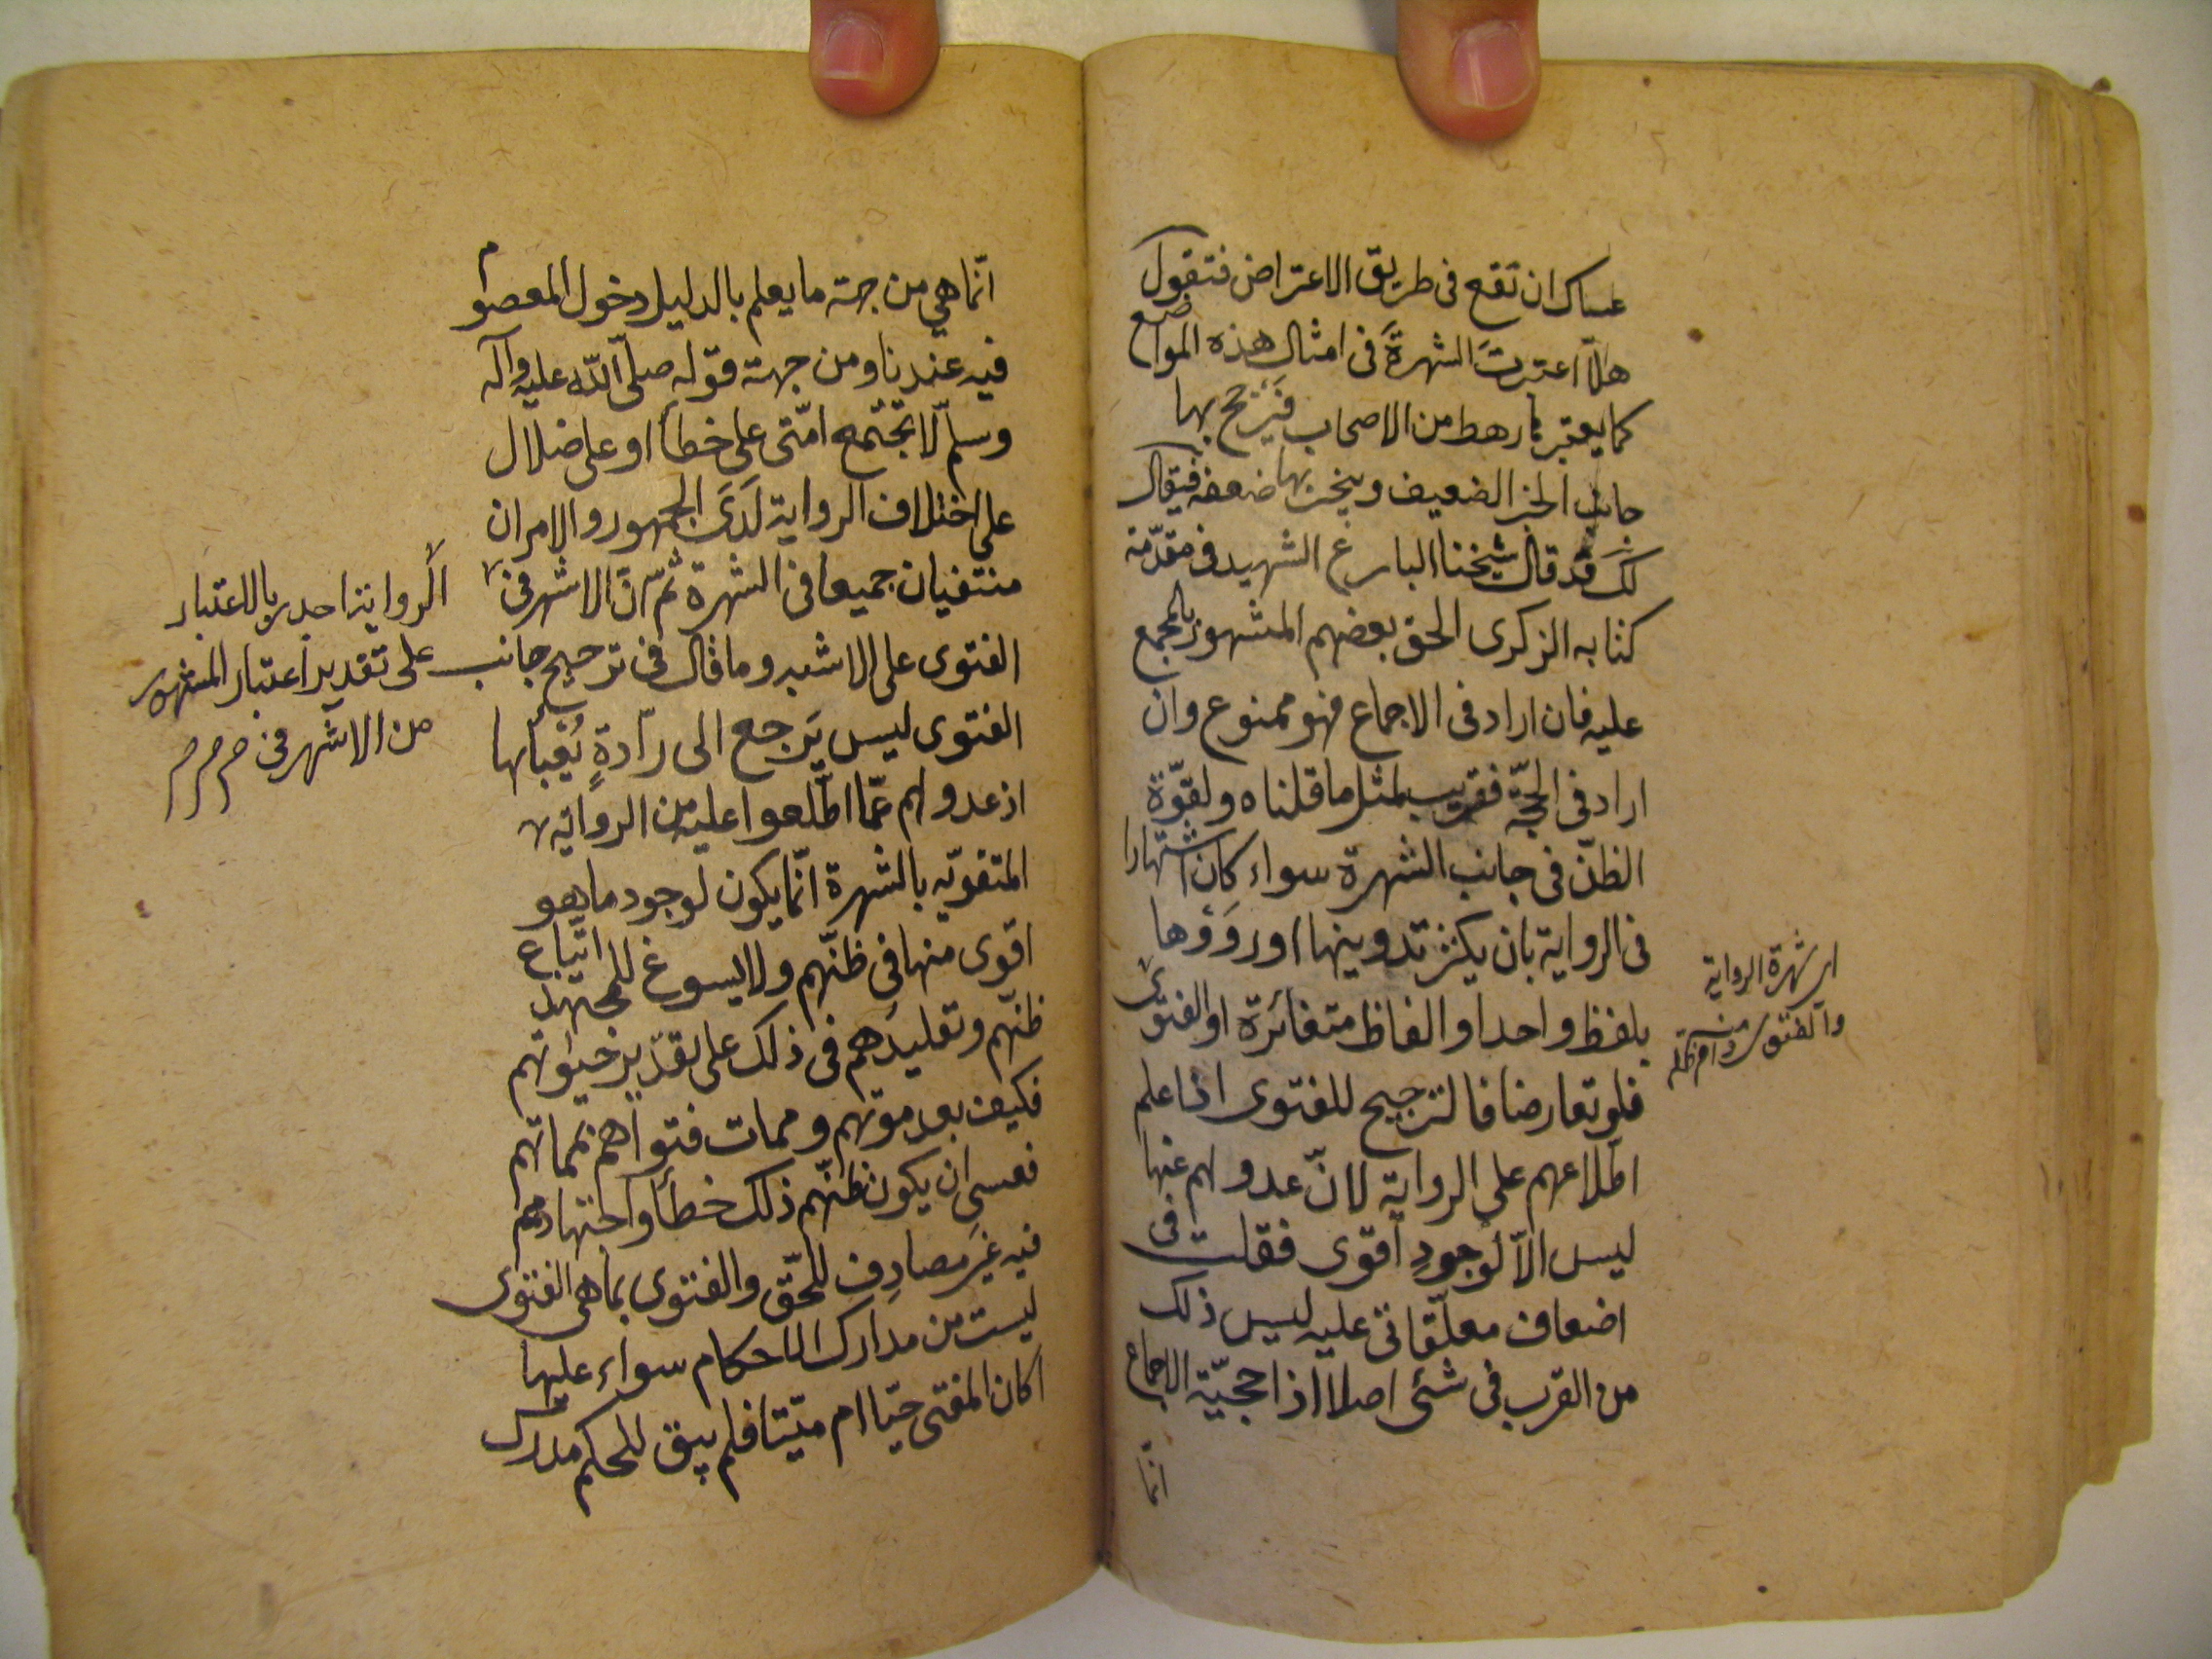 عساك ان تقع فى طريق الاعتراض فتقول
هلّا اعتبرتَ الشهرةَ فى امثال هذه المواضع
كما يعتبرها رهط من الاصحاب فيَرجح بها
جانب الخبر الضعيف وينجبر بها ضعفه فيقال
لك قد قال شيخنا البارع الشهيد فى مقدّمة
كتابه الذكرى الحق بعضهم المشهور بالمجمع
عليه فان اراد فى الاجماع فهو ممنوع وان
اراد فى الحجّة فقريب لمثل ما قلناه ولقوّة
الظنّ فى جانب الشهرة سواء كان اشتهارا
فى الرواية بان يكثر تدوينها او رووها
بلفظ واحد او الفاظ متغائرة او الفتوى
فلو تعارضا فالترجيح للفتوى اذا علم
اطلاعهم على الرواية لانّ عدولهم عنها
ليس الّا لوجودِ اقوى فقلت فى
اضعاف معلّقاتى عليه ليس ذلك
من القرب فى شئ اصلا اذا حجيّة الاجماع
انّما
اى شهرة الرواية
والفتوى منه دام ظله
انّما هي من جهة ما يعلم بالدليل دخول المعصوم
فيه عندنا ومن جهة قوله صلّى اللّه عليه وآله
وسلّم لا تجتمع امّتى على خطأ او على ضلال
على اختلاف الرواية لَدَى الجمهور والامران
منتفيان جميعا فى الشهرة ثمّ انّ الاشهر فى
الفتوى على الاشبه وما قال فى ترجيح جانب
الفتوى ليس يَرجع الى رادةٍ يُعبأ بها
اذ عدولهم عمّا اطّلعوا عليه من الرواية
المتفوّيه بالشهرة انّما يكون لوجود ما هو
اقوى منها فى ظنّهم ولا يسوغ للمجتهد اتباع
ظنّهم وتقليدهم فى ذلك على تقدير حيوتهم
فكيف بعد موتهم وممات فتواهم بمماتهم
فعسى ان يكون ظنّهم ذلك خطأ واجتهادهم
فيه غيَر مصادِف للحّق والفتوى بما هى الفتوى
ليست من مدارك الاحكام سواء عليها
اكان المفتى حيّا ام ميّتا فلم يبق للحكم مدرك
الرواية اجدر بالاعتبار
على تقدير اعتبار المشهور
من الاشهر فى